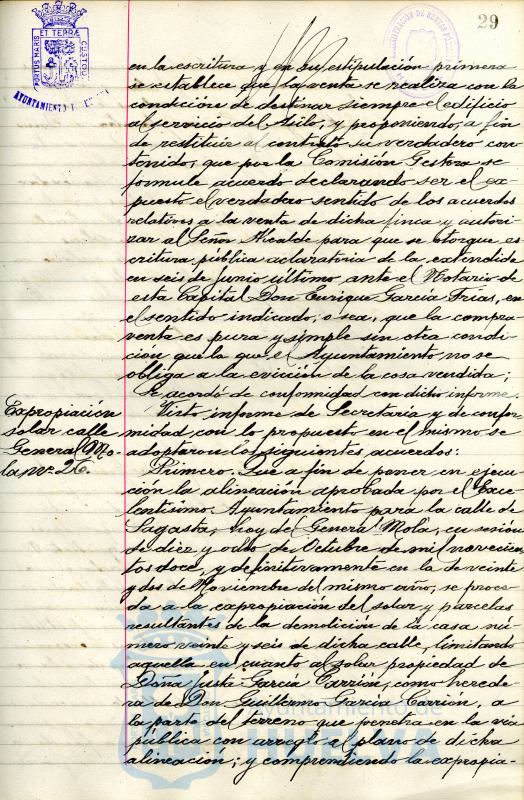 29
PORTUS MARIS ET TERRÆ CUSTODIA
AYUNTAMIENTO
en la escritura y en su estipulación primera
se establece que la venta se realiza con la
condición de destinar siempre el edificio
al servicio del Asilo; y proponiendo, a fin
de restituir al contrato su verdadero con-
tenido, que por la Comisión Gestora se
formule acuerdo declarando ser el ex-
puesto el verdadero sentido de los acuerdos
relativos a la venta de dicha finca y autori-
zar al Señor Alcalde para que se otorgue es-
critura pública aclaratoria de la extendida
en seis de Junio último ante el Notario de
esta Capital Don Enrique García Frías, en
el sentido indicado, o sea, que la compra-
venta es pura y simple sin otra condi-
ción que la que el Ayuntamiento no se
obliga a la evicción de la cosa vendida;
Se acordó de conformidad con dicho informe.
Expropiación
solar calle
General Mo-
la nº 26.
Visto informe de Secretaría y de confor-
midad con lo propuesto en el mismo se
adoptaron los siguientes acuerdos:
Primero. Que a fin de poner en ejecu-
ción la alineación aprobada por el Exce-
lentísimo Ayuntamiento para la calle de
Sagasta, hoy del General Mola, en sesión
de diez y ocho de Octubre de mil novecien-
tos doce, y definitivamente en la de veinte
y dos de Noviembre del mismo año, se proce-
da a la expropiación del solar y parcelas
resultantes de la demolición de la casa nú-
mero veinte y seis de dicha calle, limitando
aquella en cuanto al solar propiedad de
Doña Justa García Carrión, como herede-
ra de Don Guillermo García Carrión, a
la parte del terreno que penetra en la vía
pública con arreglo al plano de dicha
alineación; y comprendiendo la expropia-
Ayuntamiento de
HUELVA